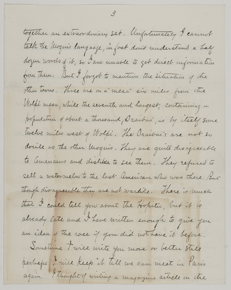 3
together an extraordinary set. Unfortunately I cannot
talk the Moquis language, in fact don't understand a half
dozen words of it, so I am unable to get direct information
from them. But I forgot to mention the situation of the
other towns. Three are on a "mesa" six miles from the
Wolpi mesa, while the seventh and largest, containing a
population of about a thousand, Oraibi, is by itself some
twelve miles west of Wolpi. The Oraibis are not so
docile as the other Moquis. They are quite disagreeable
to Americans and dislike to see them. They refused to
sell a watermelon to the last American who was there. But
though disagreeable they are not warlike. There is much
that I could tell you about the Moquis, but it is
already late and I have written enough to give you
an idea of the
Sometime I will write you more or better still
perhaps I will keep it till we can meet in Paris
again. I thought of writing a magazine article in the